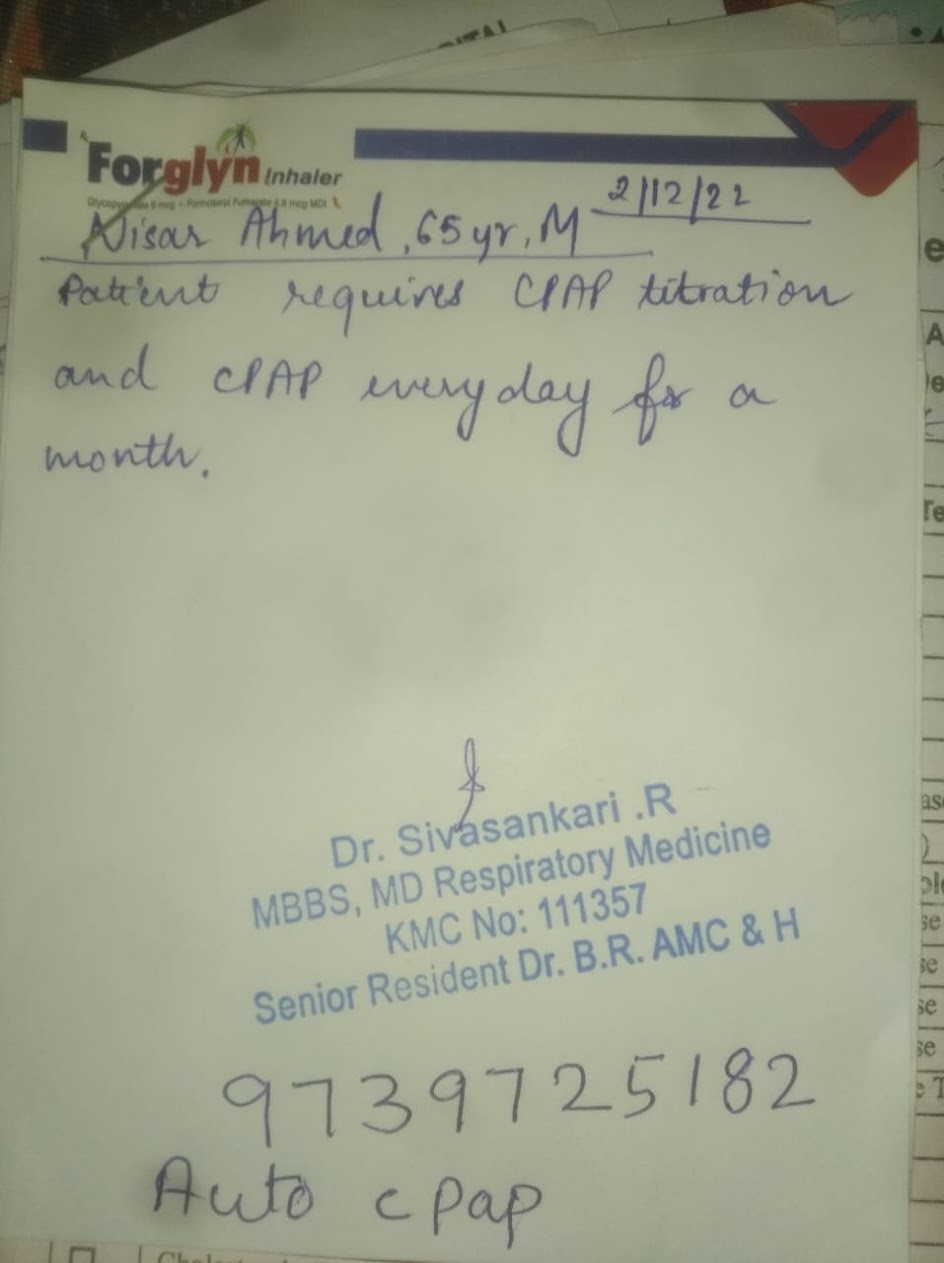 Forglyn Inhaler
Glycopyrrolate 9 mcg + Formoterol Fumarate 4.8 mcg MDI
2/12/22
Nisar Ahmed, 65 yr, M
Patient requires CPAP titration
and CPAP everyday for a
month.
Dr. Sivasankari .R
MBBS, MD Respiratory Medicine
KMC No: 111357
Senior Resident Dr. B.R. AMC & H
9739725182
Auto cpap